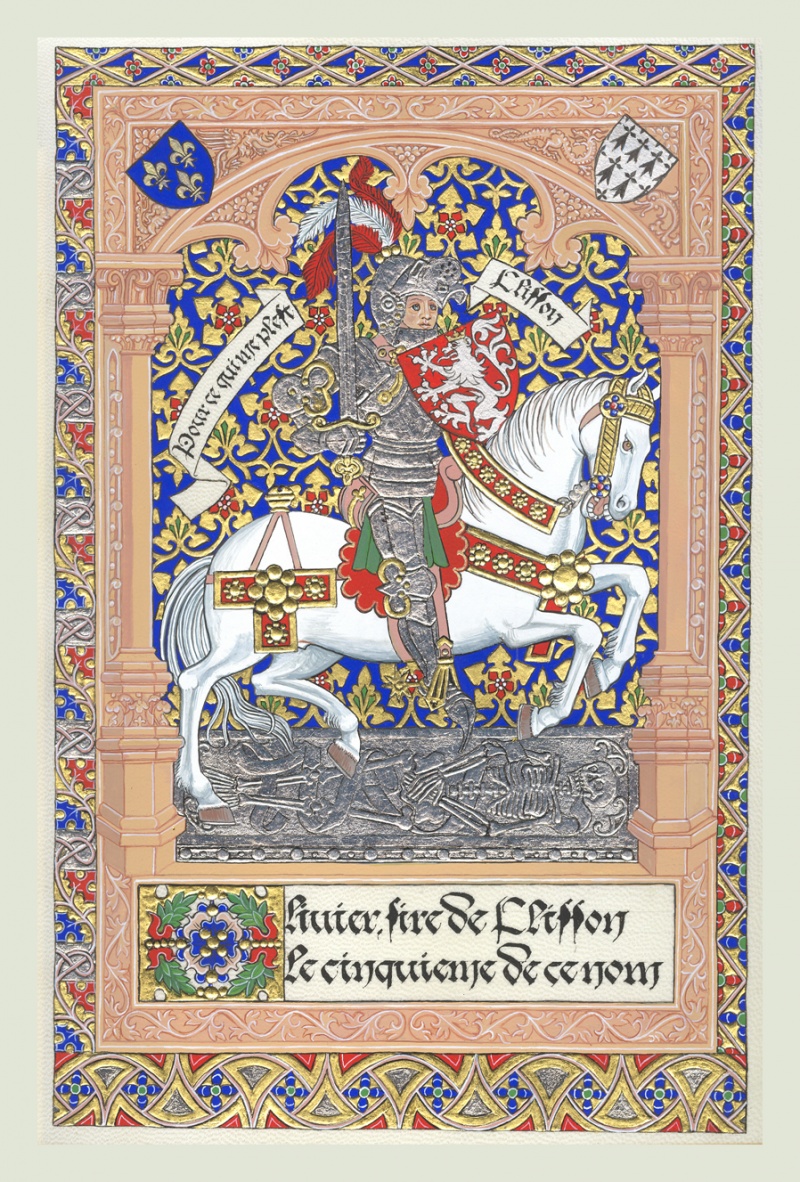 Pour ce qu'il me plest
Clisson
Olivier, sire de Clisson
Le cinquieme de ce nom